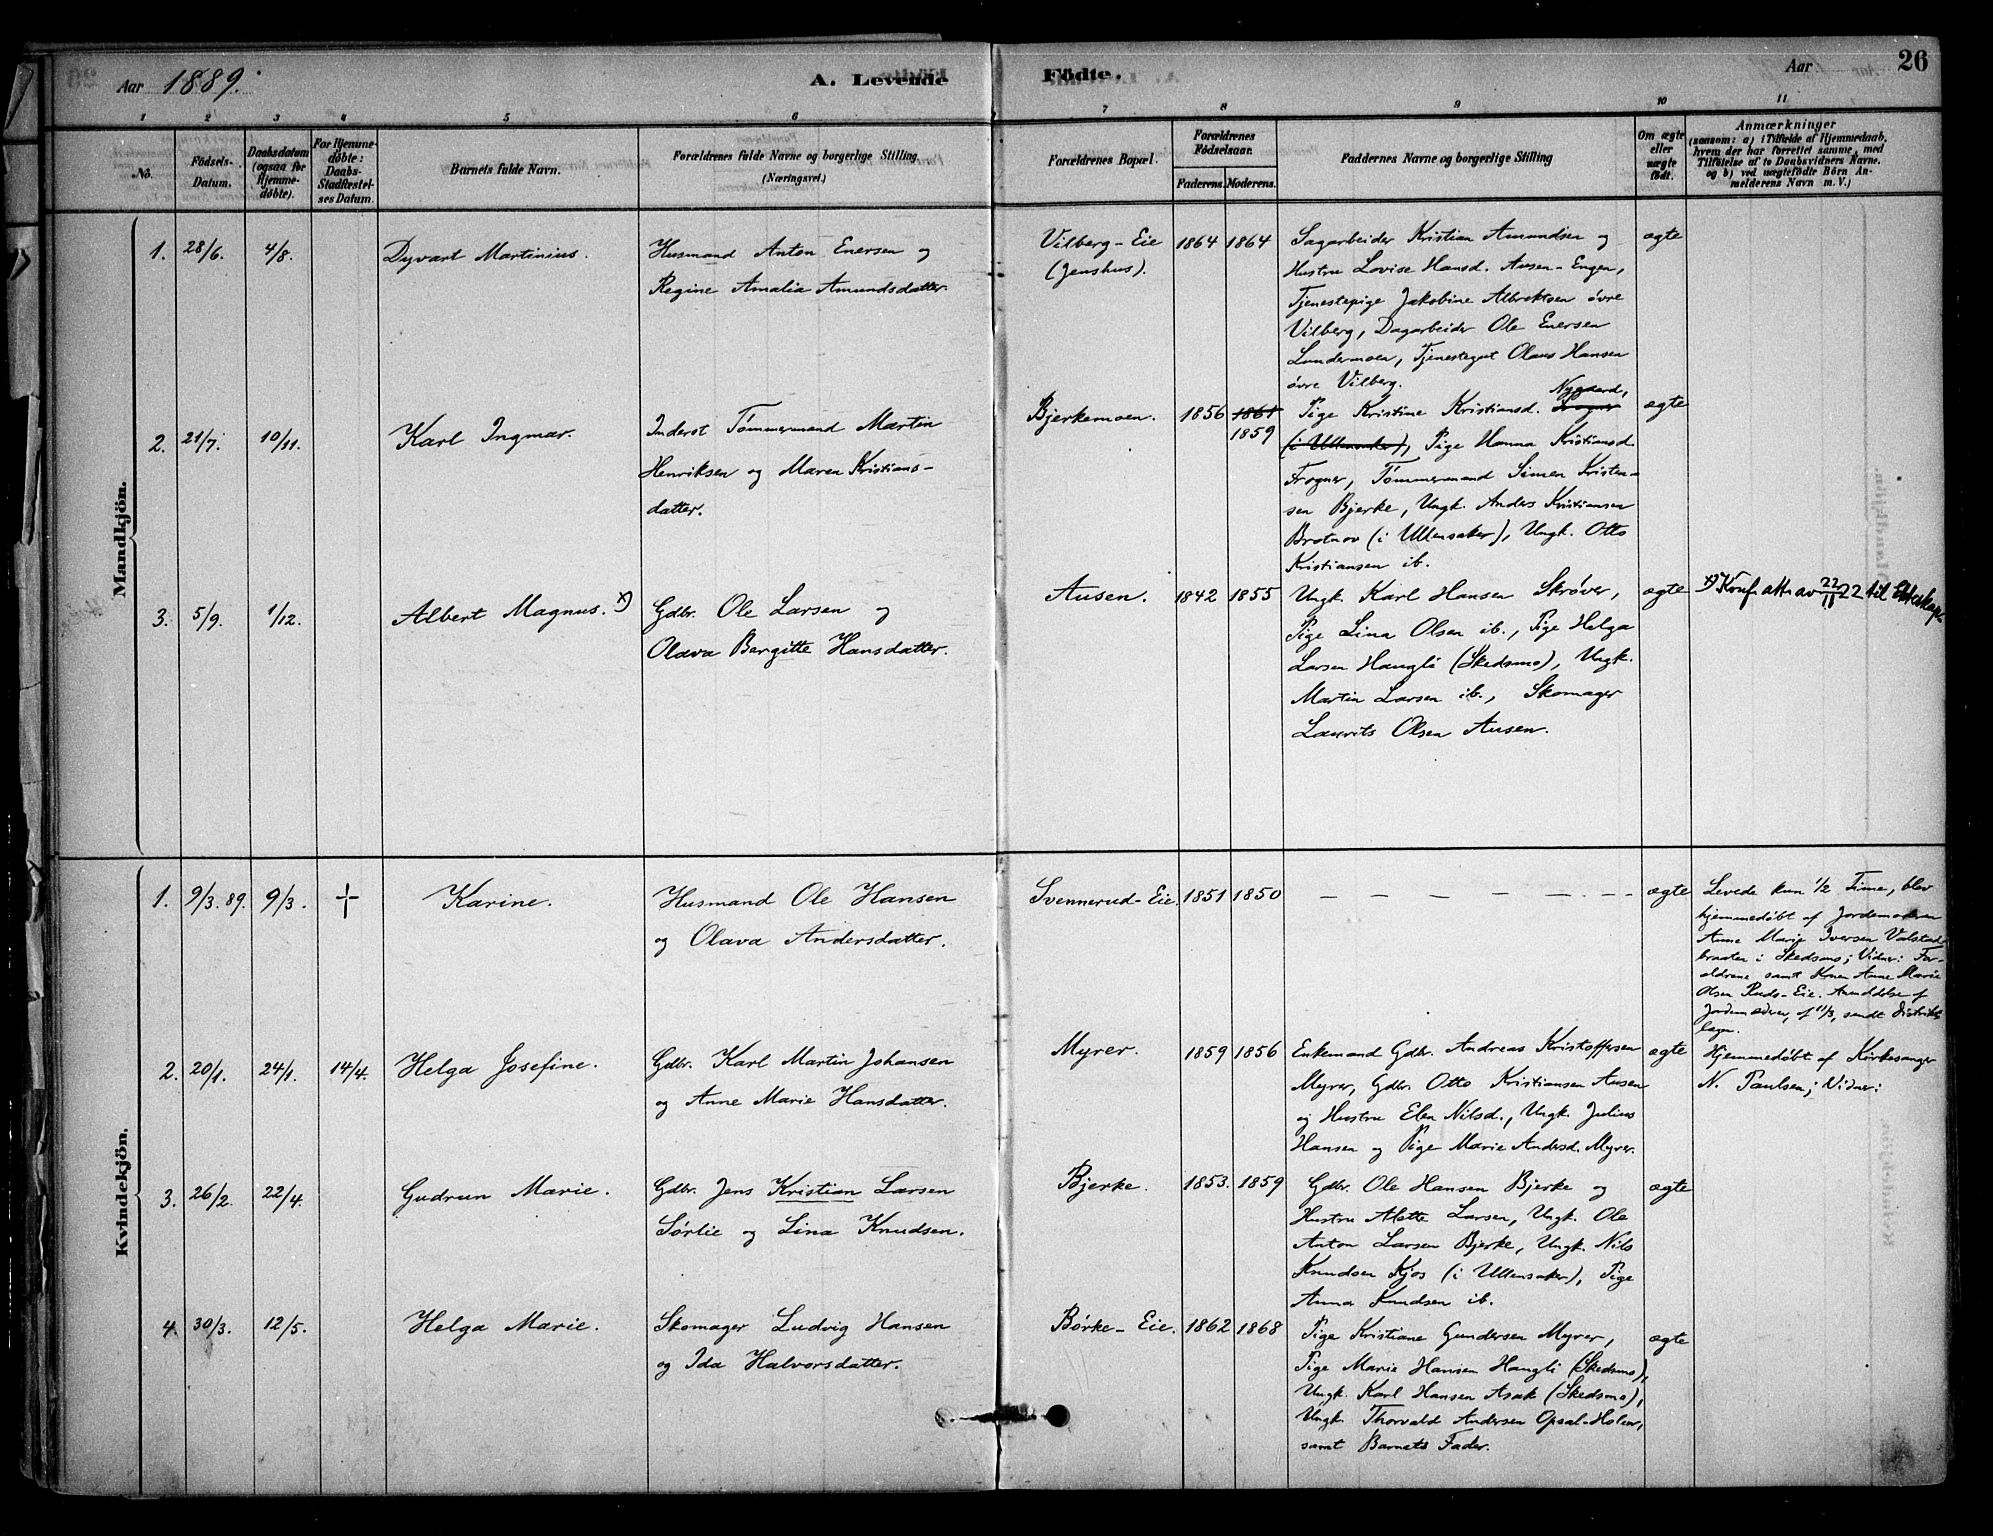 Aar 1889.
A. Levende
Födte.
Aar
26
1
2
3
4
5
6
7
8
9
10
11
No.
Födsels-
Datum.
Daabsdatum
(ogsaa for
Hjemme-
döbte).
For Hjemme-
döbte:
Daabs-
Stadfæstel-
ses Datum.
Barnets fulde Navn.
Forældrenes fulde Navne og borgerlige Stilling
(Næringsvei.)
Forældrenes Bopæl.
Forældrenes
Födselsaar.
Faderens.
Moderens.
Faddernes Navne og borgerlige Stilling
Om ægte
eller
uægte
födt.
Anmærkninger
(saasom: a) i Tilfælde af Hjemmedaab,
hvem der har forrettet samme, med
Tilföielse af to Daabsvidners Navne.
og b) ved uægtefödte Börn An-
melderens Navn m. V.)
Mandkjön.
1. 28/6. 4/8. Dyvart Martinius.
Husmand Anton Enersen og
Regine Amalia Amundsdatter.
Vilberg-Eie
(Jenshus).
1864 1864
Sagarbeider Kristian Amundsen og
Hustru Lovise Hansd. Ausen-Engen,
Tjenestepige Jakobine Albrektsen övre
Vilberg, Dagarbeider Ole Enersen
Lundermoen, Tjenestegut Olaus Hansen
övre Vilberg.
ægte
2. 21/7. 10/11. Karl Ingmar.
Inderst Tömmermand Martin
Henriksen og Maren Kristians-
datter.
Bjerkemoen.
1856 1861
1859
Nygaard,
Pige Kristine Kristiansd. Frogner
(i Ullensaker), Pige Hanna Kristiansd
Frogner, Tömmermand Simen Kristen-
sen Bjerke, Ungk. Anders Kristiansen
Brotnov (i Ullensaker), Ungk. Otto
Kristiansen ib.
ægte
3. 5/9. 1/12. Albert Magnus. x)
Gdbr. Ole Larsen og
Olava Bergitte Hansdatter.
Ausen.
1842 1855
Ungk. Karl Hansen Skrøver,
Pige Lina Olsen ib., Pige Helga
Larsen Haugli (Skedsmo), Ungk.
Martin Larsen ib., Skomager
Laurits Olsen Ausen.
ægte
x) Konf. att. av 22/11 22 til Ekteskap.
Kvindekjön.
1. 9/3. 89. 9/3. + Karine.
Husmand Ole Hansen
og Olava Andersdatter.
Svennerud-Eie.
1851 1850
— — — — — — —
ægte
Levede kun 1/2 Time, blev
hjemmedøbt af Jordemoderen
Anne Marie Iversen Valstad-
braaten i Skedsmo; Vidner: For-
ældrene samt Konen Anne Marie
Olsen Ruds-Eie. Anmeldelse af
Jordemoder, af 11/3, sendt Distrikts-
lægen.
2. 20/1. 24/1. 14/4. Helga Josefine.
Gdbr. Karl Martin Johansen
og Anne Marie Hansdatter.
Myrer.
1859 1856
Enkemand Gdbr. Andreas Kristoffersen
Myrer, Gdbr. Otto Kristiansen Ausen
og Hustru Elen Nilsd., Ungk. Julius
Hansen og Pige Marie Andersd. Myrer.
ægte
Hjemmedøbt af Kirkesanger
N. Paulsen; Vidner:
3. 26/2. 22/4. Gudrun Marie.
Gdbr. Jens Kristian Larsen
Sørlie og Lina Knudsen.
Bjerke.
1853. 1859
Gdbr. Ole Hansen Bjerke og
Hustru Alette Larsen, Ungk. Ole
Anton Larsen Bjerke, Ungk. Nils
Knudsen Kjos (i Ullensaker), Pige
Anna Knudsen ib.
ægte
4. 30/3. 12/5. Helga Marie.
Skomager Ludvig Hansen
og Ida Halvorsdatter.
Børke-Eie.
1862 1868
Pige Kristiane Gundersen Myrer,
Pige Marie Hansen Haugli (Skedsmo),
Ungk. Karl Hansen Asak (Skedsmo),
Ungk. Thorvald Andersen Opsal-Holen,
samt Barnets Fader.
ægte